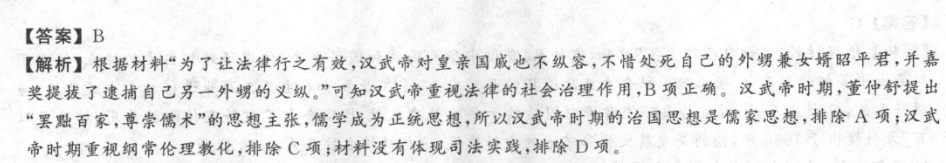 【答案】B
【解析】根据材料“为了让法律行之有效,汉武帝对皇亲国戚也不纵容,不惜处死自己的外甥兼女婿昭平君,并嘉
奖提拔了逮捕自己另一外甥的义纵。”可知汉武帝重视法律的社会治理作用,B项正确。汉武帝时期,董仲舒提出
“罢黜百家,尊崇儒术”的思想主张,儒学成为正统思想,所以汉武帝时期的治国思想是儒家思想,排除A项;汉武
帝时期重视纲常伦理教化,排除C项;材料没有体现司法实践,排除D项。